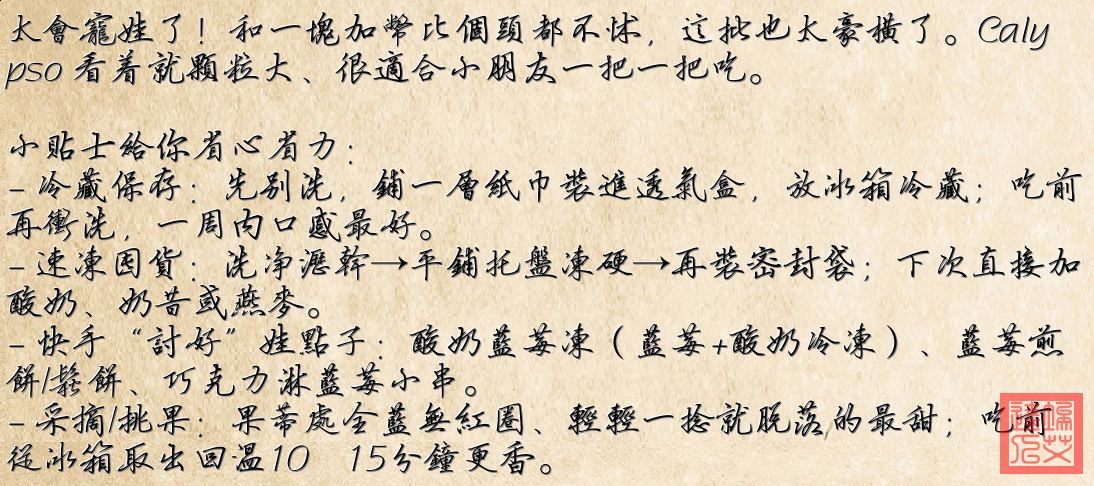 太會寵娃了！和一塊加幣比個頭都不怵，這批也太豪橫了。Caly
pso 看着就顆粒大、很適合小朋友一把一把吃。
小貼士給你省心省力：
- 冷藏保存：先別洗，鋪一層紙巾裝進透氣盒，放冰箱冷藏；吃前
再衝洗，一周内口感最好。
- 速凍囤貨：洗净瀝幹→平鋪托盤凍硬→再裝密封袋；下次直接加
酸奶、奶昔或燕麥。
- 快手“討好”娃點子：酸奶藍莓凍（藍莓+酸奶冷凍）、藍莓煎
餅/鬆餅、巧克力淋藍莓小串。
- 采摘/挑果：果蒂處全藍無紅圈、輕輕一捻就脱落的最甜；吃前
從冰箱取出回温10 15分鐘更香。